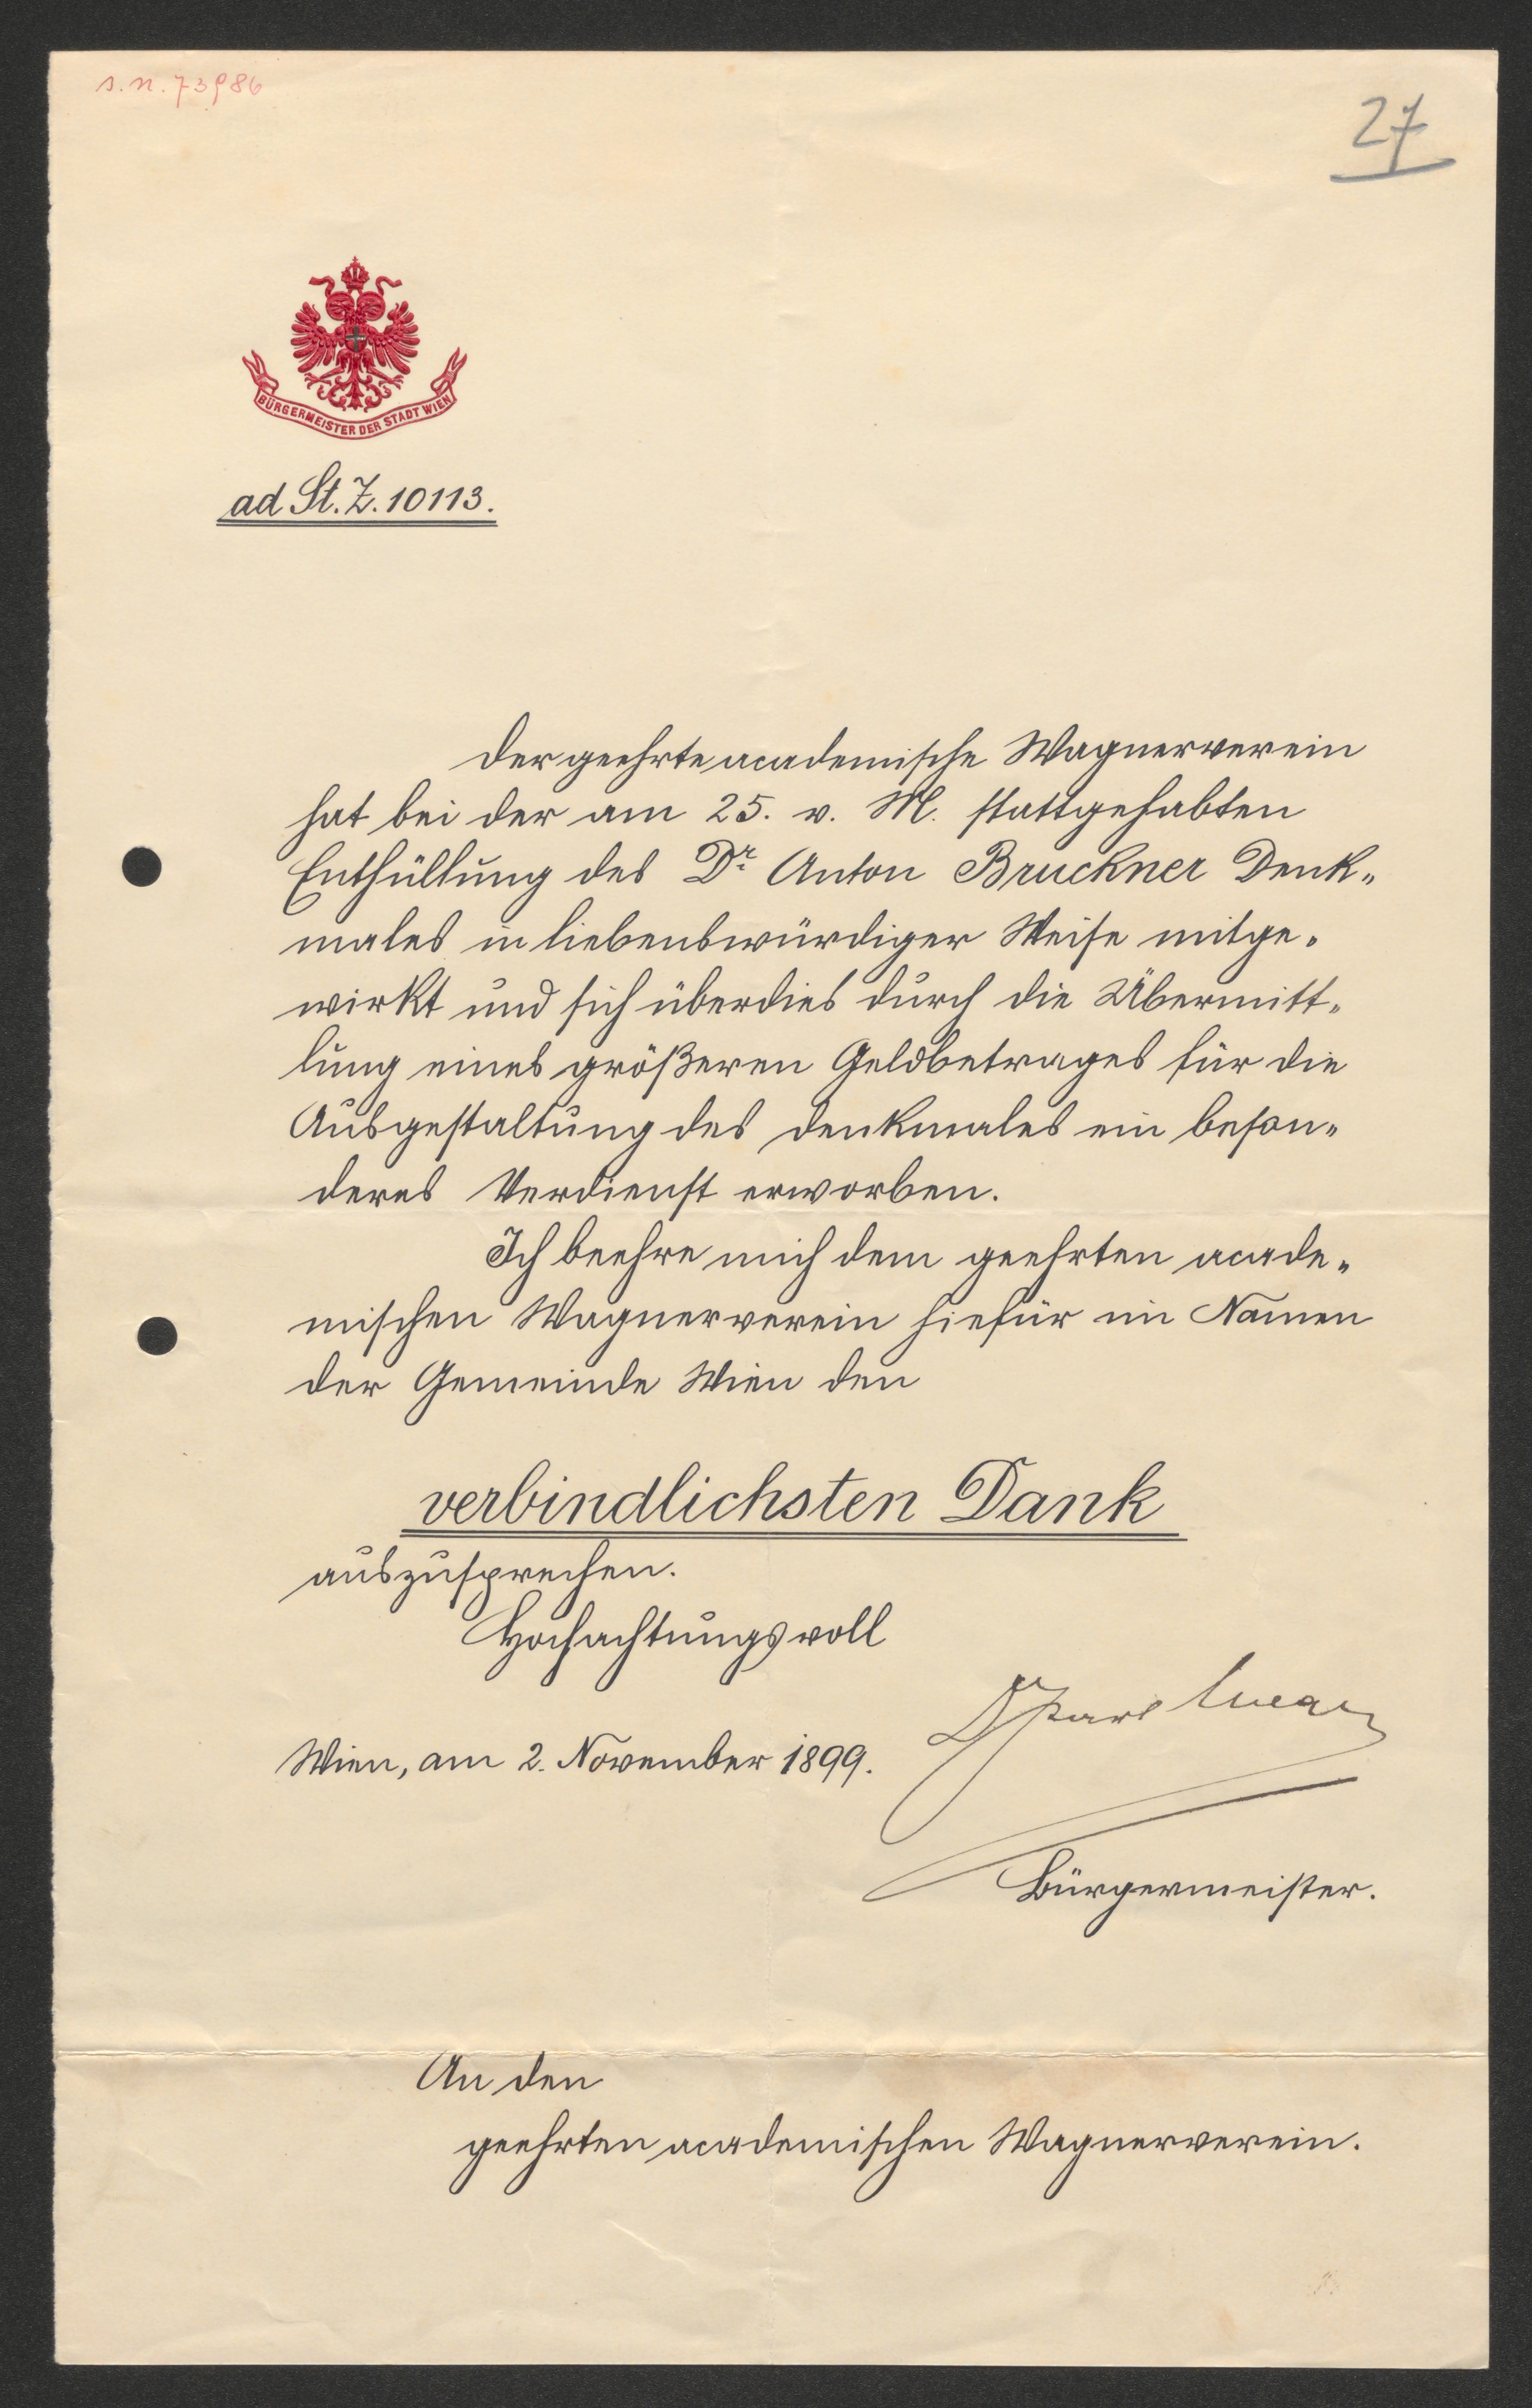 s.n. 73986
27
BÜRGERMEISTER DER STADT WIEN
ad St. Z. 10113.
Der geehrte academische Wagnerverein
hat bei der am 25. v. M. stattgehabten
Enthüllung des Dr. Anton Bruckner Denk„
males in liebenswürdiger Weise mitge„
wirkt und sich überdies durch die Übermitt„
lung eines größeren Geldbetrages für die
Ausgestaltung des Denkmales ein beson„
deres Verdienst erworben.
Ich beehre mich dem geehrten acade„
mischen Wagnerverein hiefür im Namen
der Gemeinde Wien den
verbindlichsten Dank
auszusprechen.
Hochachtungsvoll
Dr Karl Lueger
Wien, am 2. November 1899.
Bürgermeister.
An den
geehrten academischen Wagnerverein.